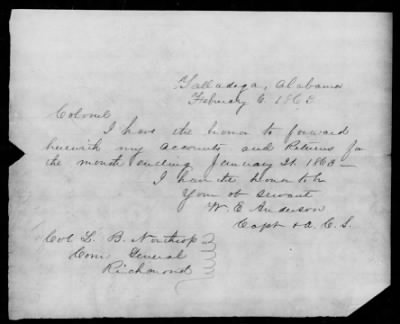 Talladega, Alabama
February 6. 1863
Colonel
I have the honor to forward
herewith my accounts and Returns for
the month ending January 31. 1863 —
I have the honor to be
Your obt Servant
W. E. Anderson
Capt & A. C. S.
Col L. B. Northrop
Com General
Richmond